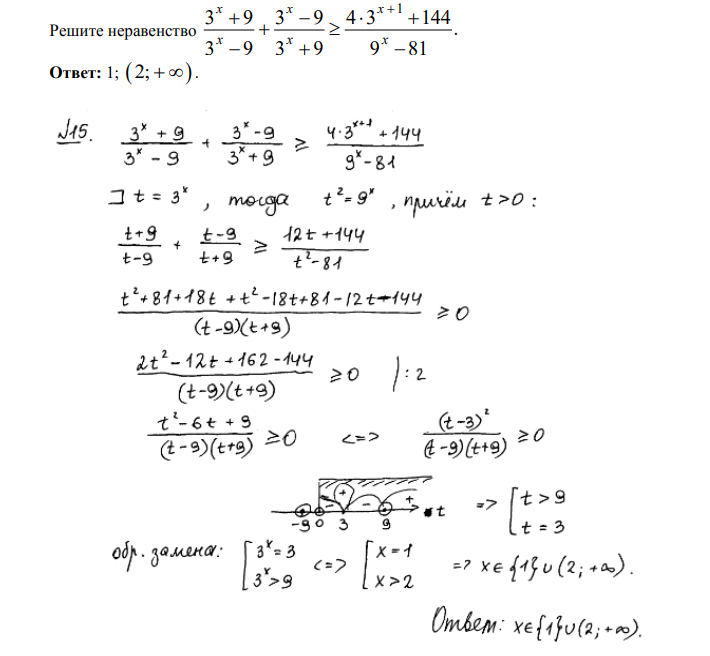 Решите неравенство (3^x + 9)/(3^x − 9) + (3^x − 9)/(3^x + 9) ≥ (4·3^(x+1) + 144)/(9^x − 81).
Ответ: 1; (2; +∞).
№15. (3^x + 9)/(3^x − 9) + (3^x − 9)/(3^x + 9) ≥ (4·3^(x+1) + 144)/(9^x − 81)
⊐ t = 3^x, тогда t² = 9^x, причём t > 0:
(t+9)/(t−9) + (t−9)/(t+9) ≥ (12t + 144)/(t² − 81)
(t² + 81 + 18t + t² − 18t + 81 − 12t − 144)/((t−9)(t+9)) ≥ 0
(2t² − 12t + 162 − 144)/((t−9)(t+9)) ≥ 0 | : 2
(t² − 6t + 9)/((t−9)(t+9)) ≥ 0 <=> (t−3)²/((t−9)(t+9)) ≥ 0
− + − + t => [ t > 9
−9 0 3 9 t = 3
обр. замена: [ 3^x = 3 <=> [ x = 1 => x ∈ {1} ∪ (2; +∞).
3^x > 9 x > 2
Ответ: x ∈ {1} ∪ (2; +∞).